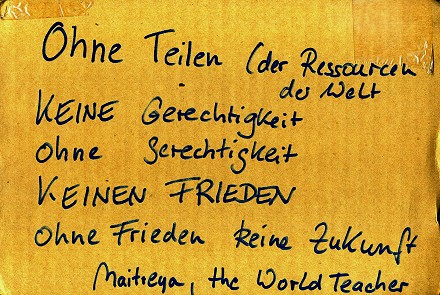 Ohne Teilen (der Ressourcen
der Welt
KEINE Gerechtigkeit
Ohne Gerechtigkeit
KEINEN FRIEDEN
Ohne Frieden keine Zukunft
Maitreya, the World Teacher